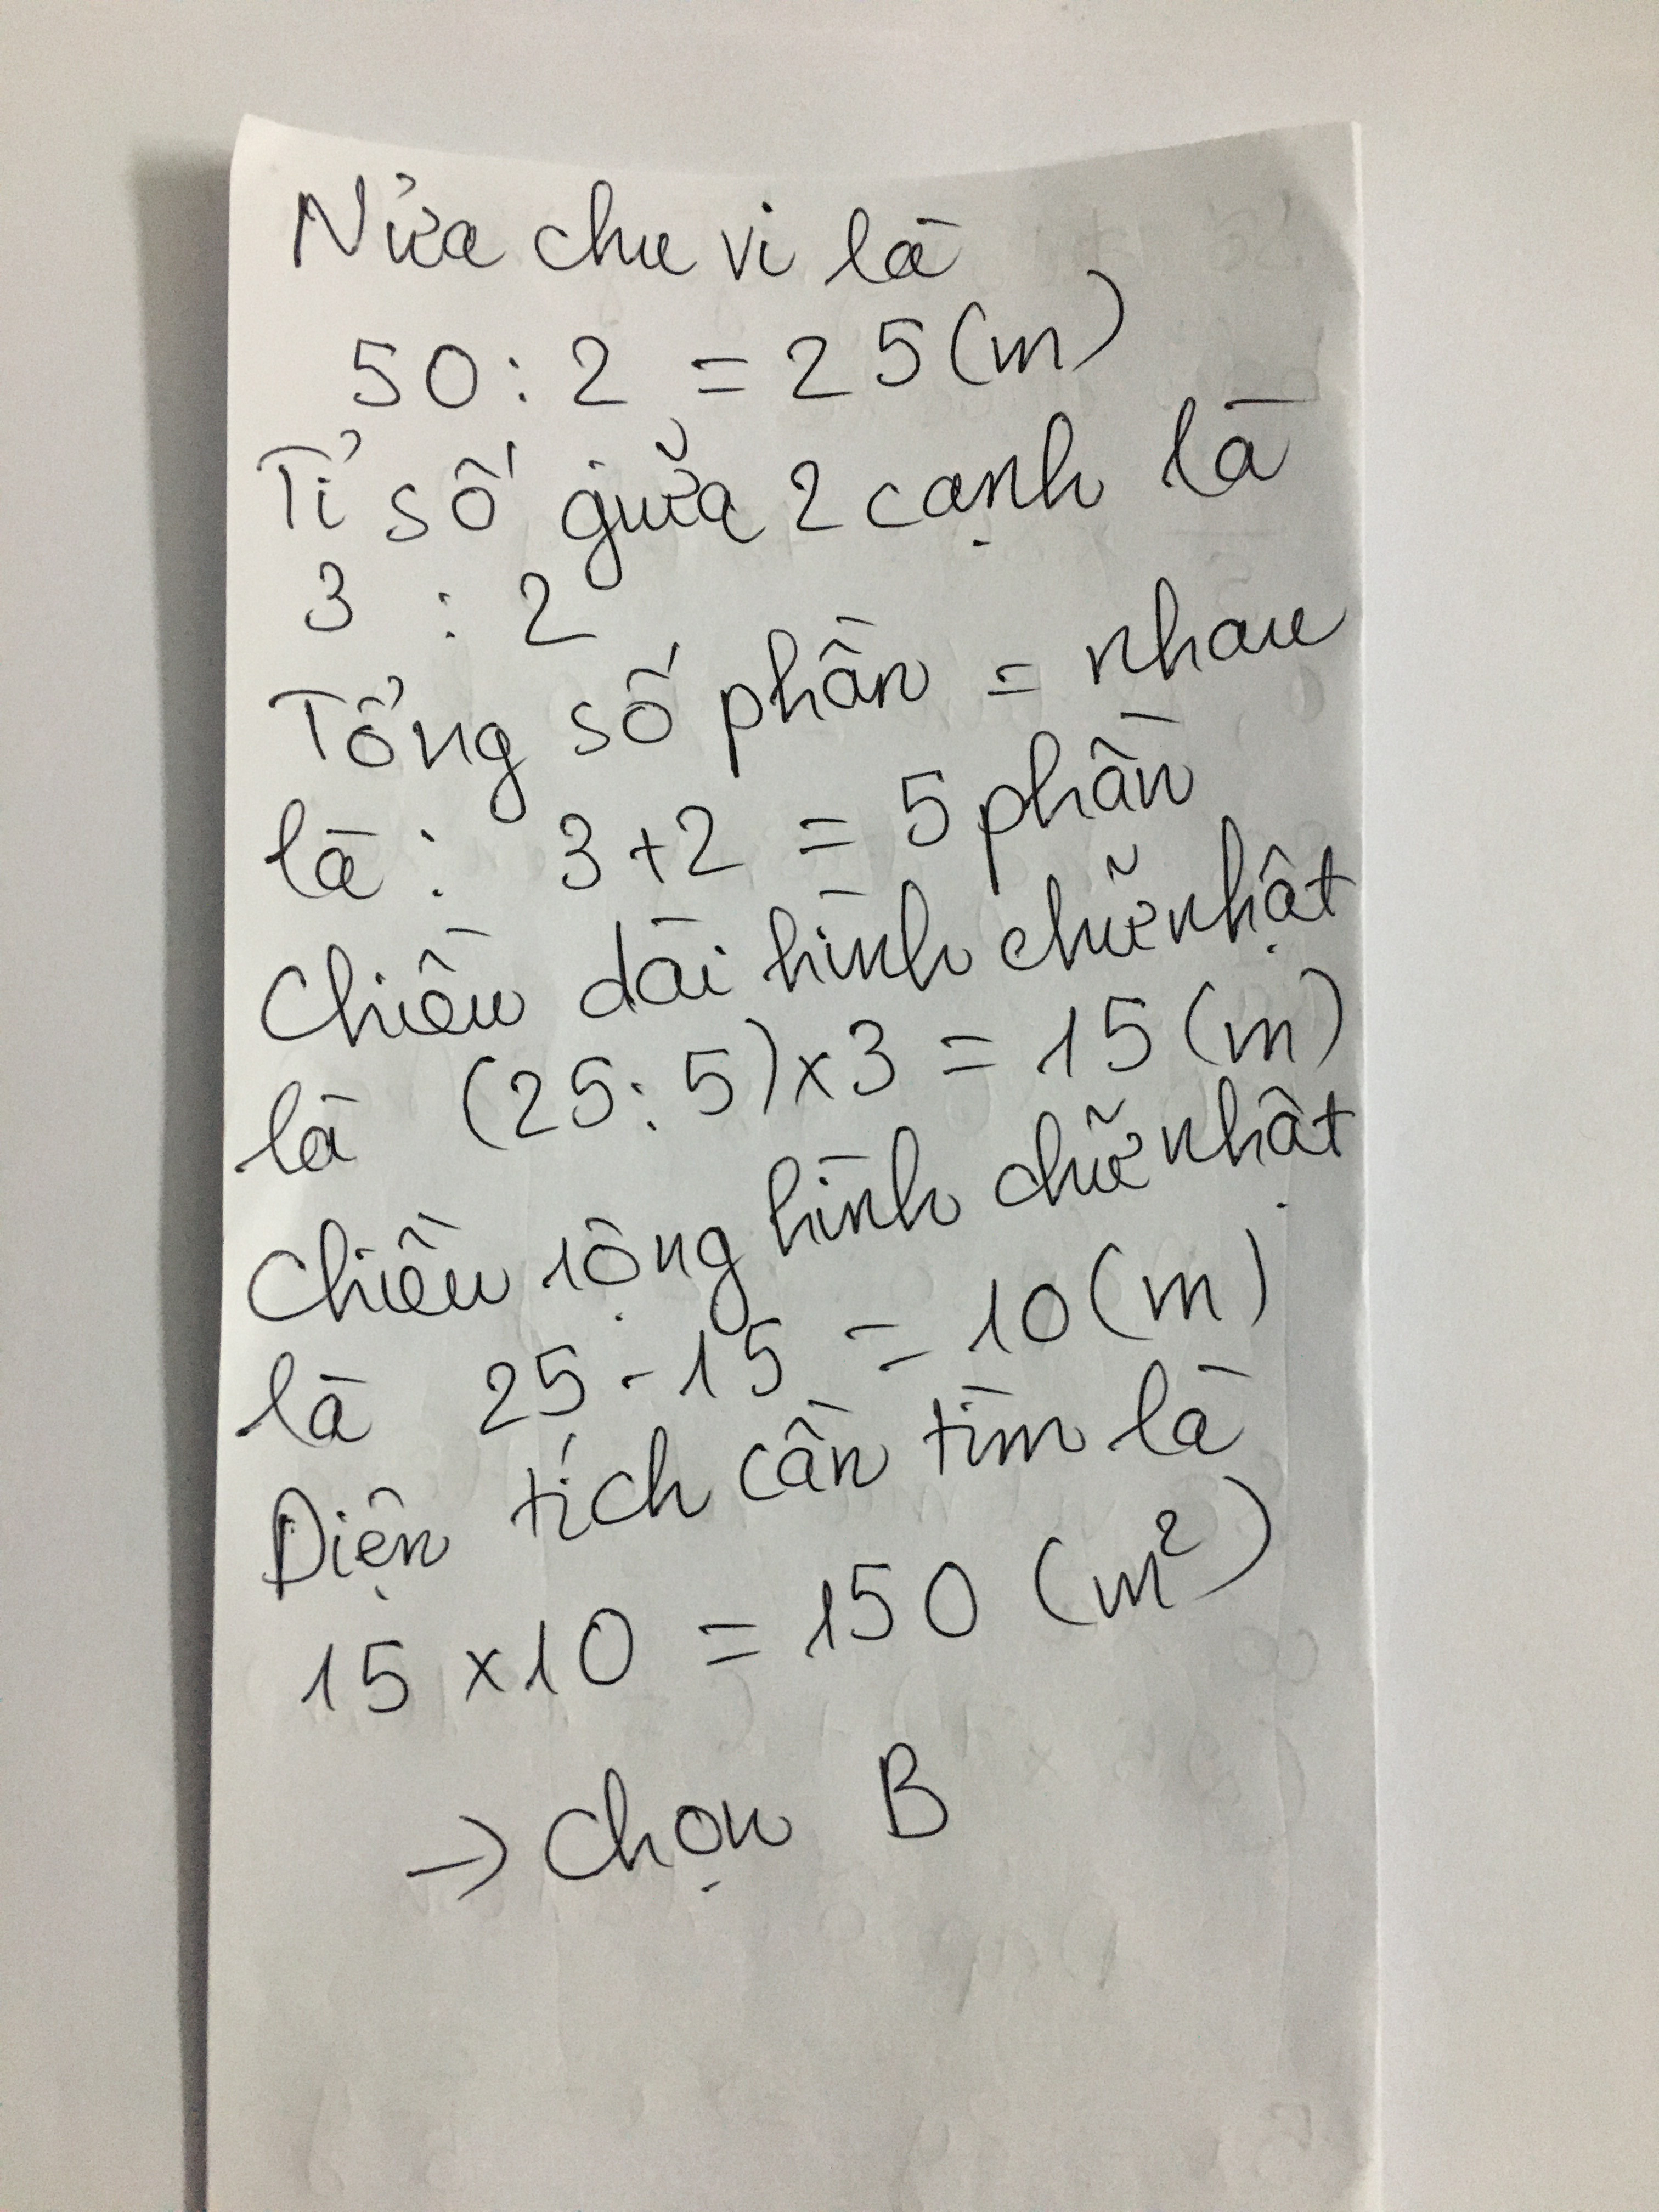 Nửa chu vi là
50 : 2 = 25 (m)
Tỉ số giữa 2 cạnh là
3 : 2
Tổng số phần = nhau
là : 3 + 2 = 5 phần
Chiều dài hình chữ nhật
là (25 : 5) x 3 = 15 (m)
Chiều rộng hình chữ nhật
là 25 - 15 = 10 (m)
Diện tích cần tìm là
15 x 10 = 150 (m²)
→ Chọn B